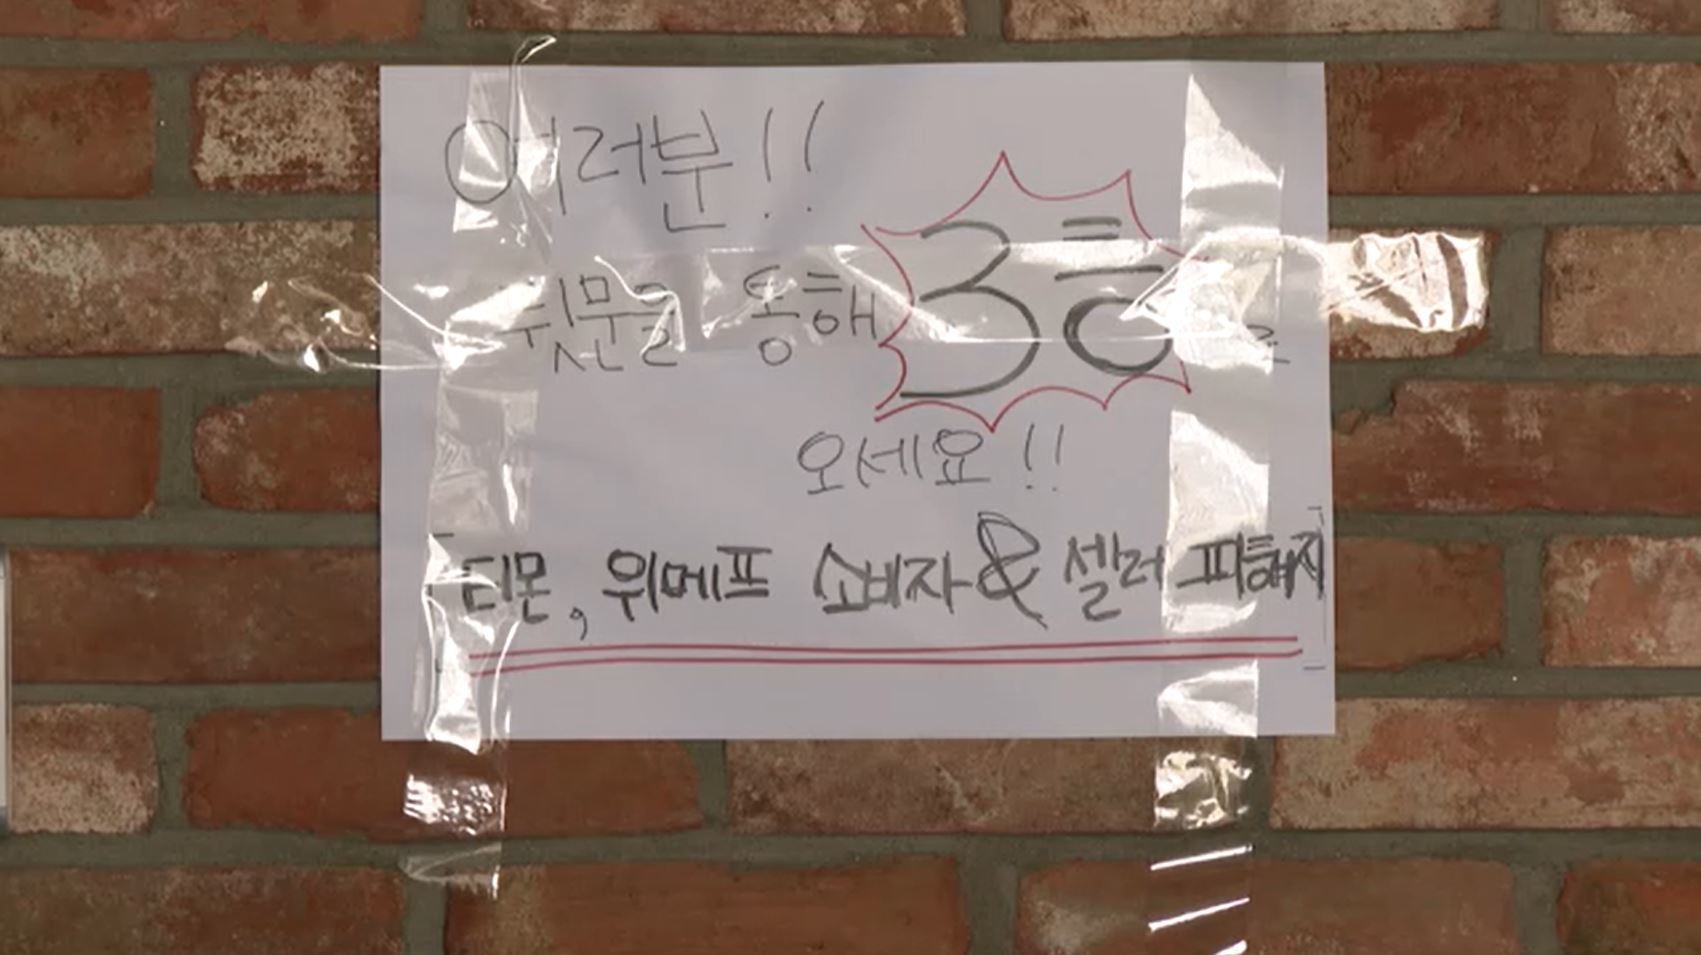 여러분!!
뒷문을 통해 3층으로
오세요!!
티몬, 위메프 소비자 & 셀러 피해자